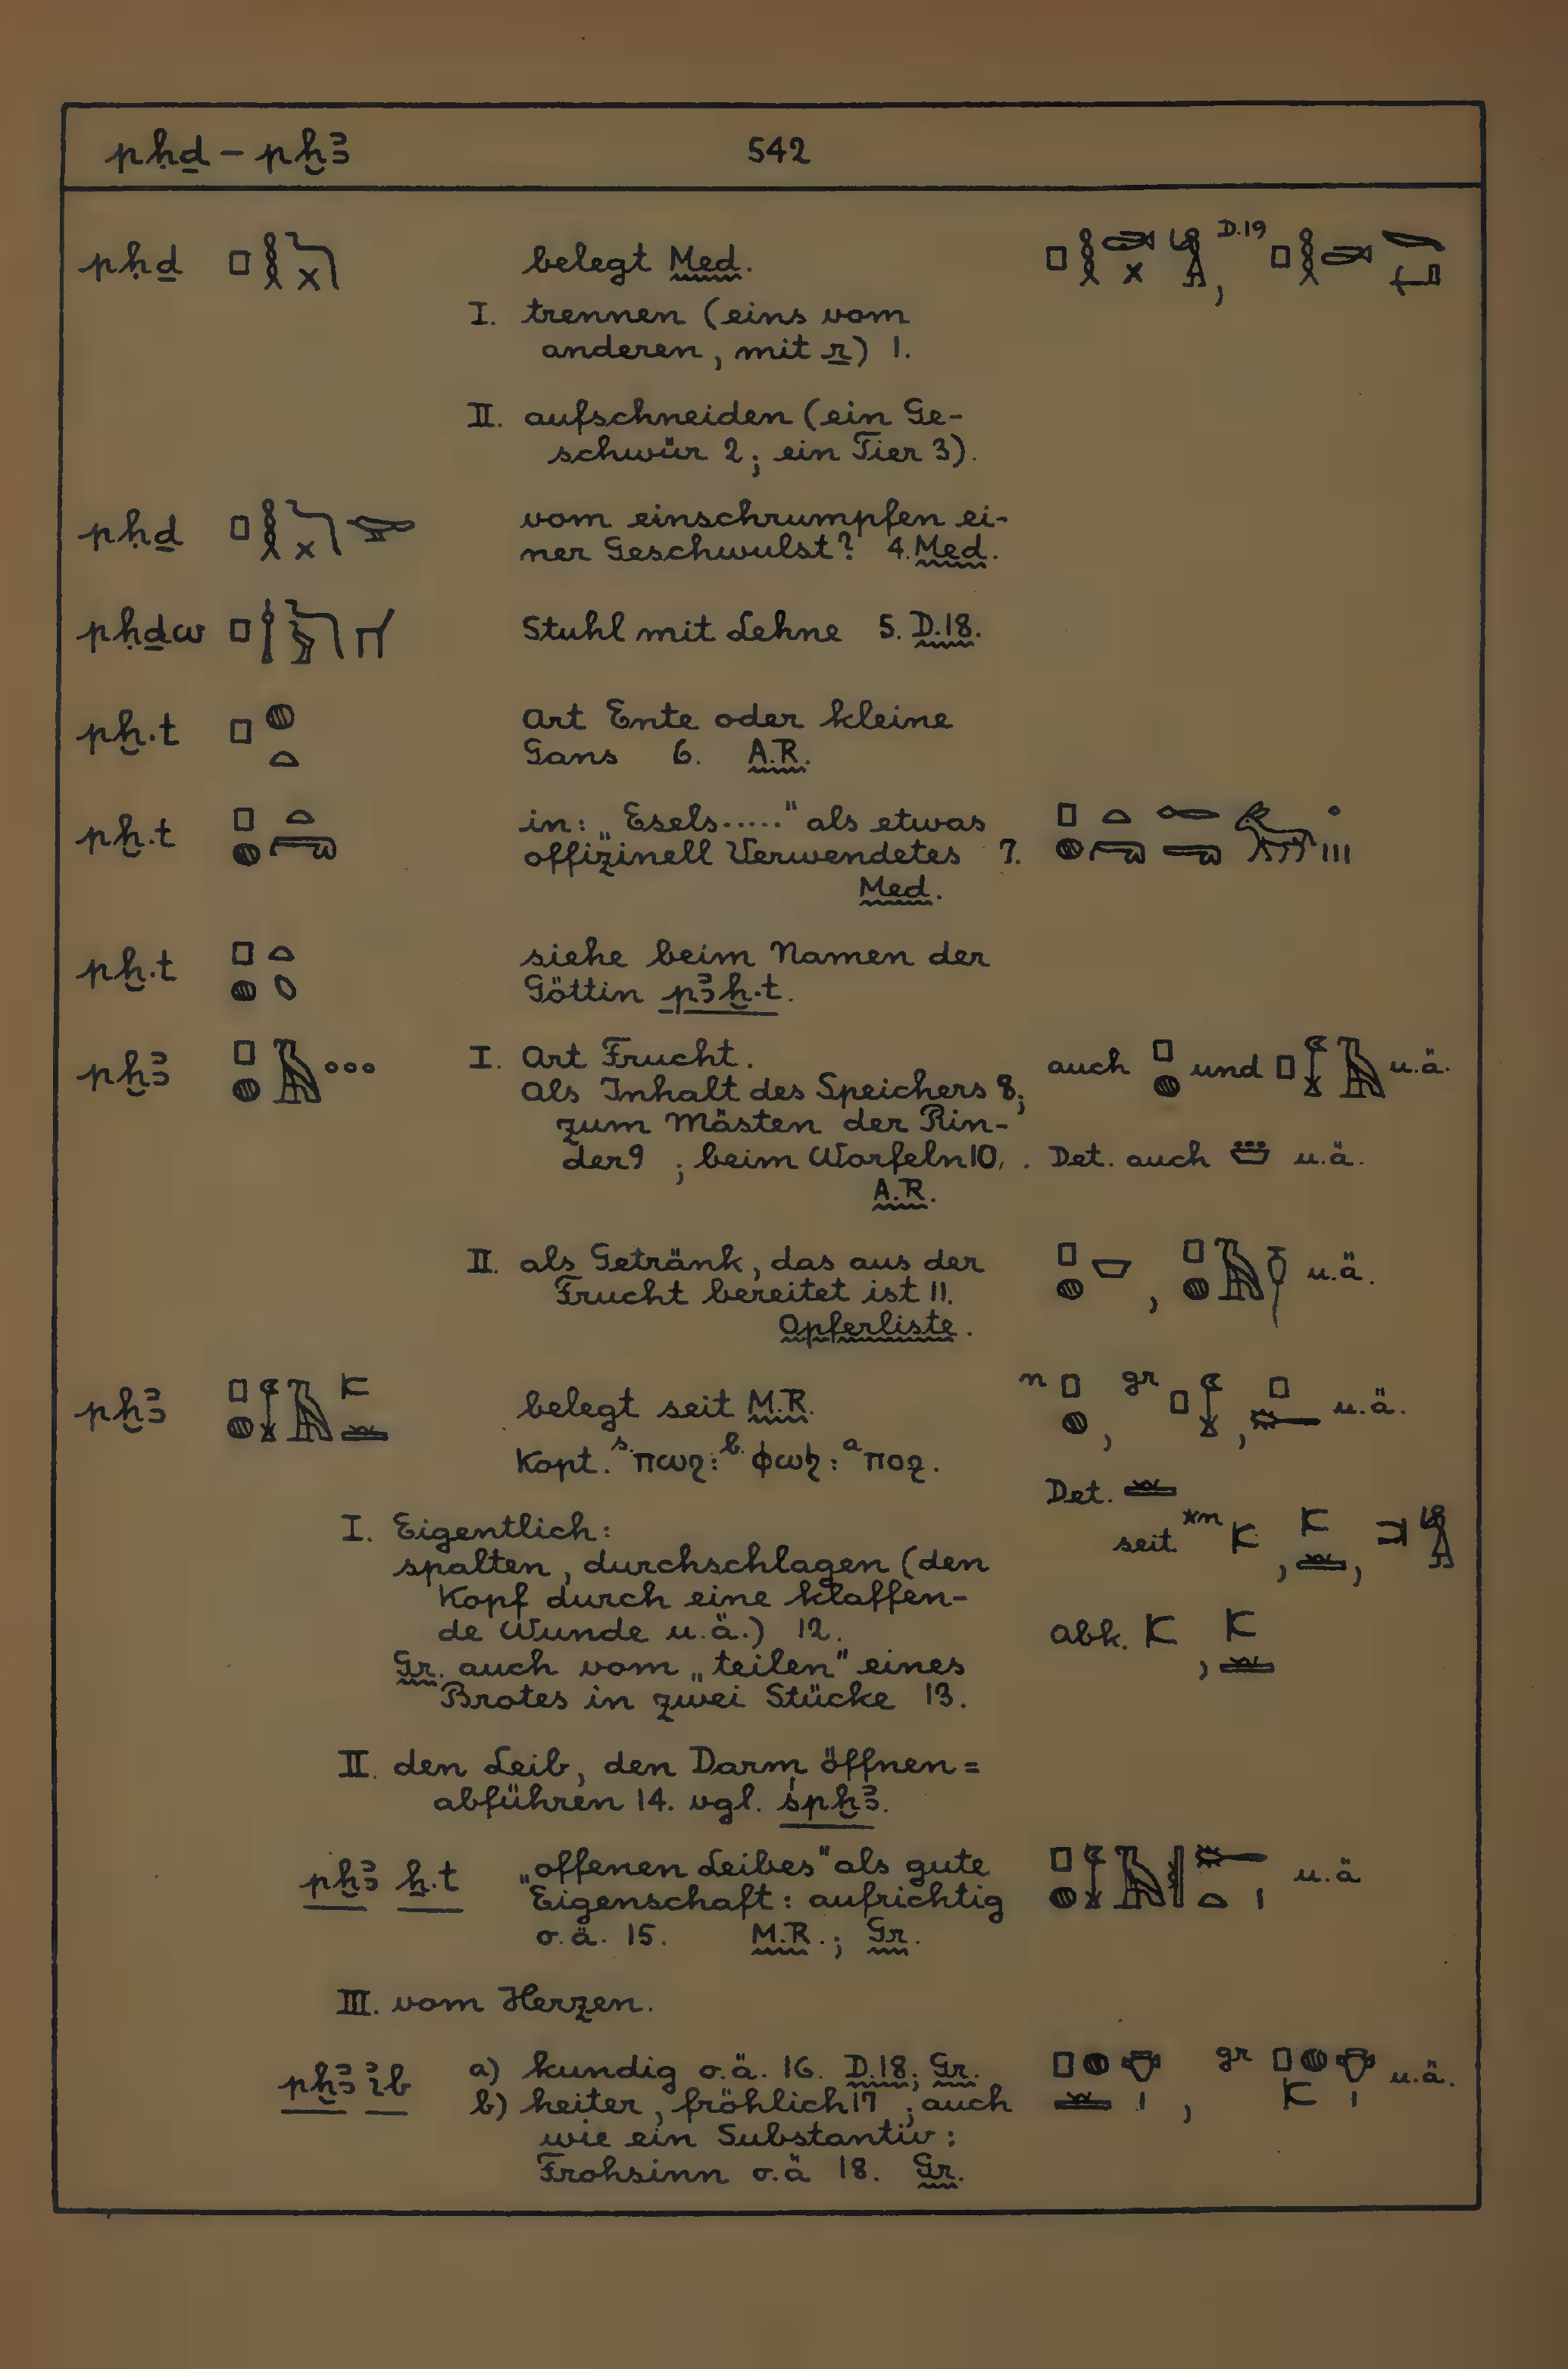 pḥḏ – pḫꜣ 542
pḥḏ belegt Med. D.19
I. trennen (eins vom
anderen, mit r) 1.
II. aufschneiden (ein Ge-
schwür 2; ein Tier 3).
pḥḏ vom einschrumpfen ei-
ner Geschwulst? 4. Med.
pḥḏw Stuhl mit Lehne 5. D.18.
pḫ.t Art Ente oder kleine
Gans 6. A.R.
pḫ.t in: „Esels....." als etwas
offizinell Verwendetes 7.
Med.
pḫ.t siehe beim Namen der
Göttin pꜣḫ.t.
pḫꜣ I. Art Frucht. auch und u.ä.
Als Inhalt des Speichers 8;
zum Mästen der Rin-
der 9; beim Worfeln 10, . Det. auch u.ä.
A.R.
II. als Getränk, das aus der u.ä.
Frucht bereitet ist 11.
Opferliste.
pḫꜣ belegt seit M.R. n , gr , u.ä.
Kopt. s. ⲡⲱϩ : b. ⲫⲱϧ : a ⲡⲟϩ.
Det.
I. Eigentlich: seit *n , ,
spalten, durchschlagen (den
Kopf durch eine klaffen-
de Wunde u.ä.) 12. Abk. ,
Gr. auch vom „teilen" eines
Brotes in zwei Stücke 13.
II. den Leib, den Darm öffnen =
abführen 14. vgl. śpḫꜣ.
pḫꜣ ẖ.t „offenen Leibes" als gute u.ä
Eigenschaft: aufrichtig
o.ä. 15. M.R.; Gr.
III. vom Herzen.
pḫꜣ ꞽb a) kundig o.ä. 16. D.18; Gr. , gr u.ä.
b) heiter, fröhlich 17; auch
wie ein Substantiv:
Frohsinn o.ä 18. Gr.